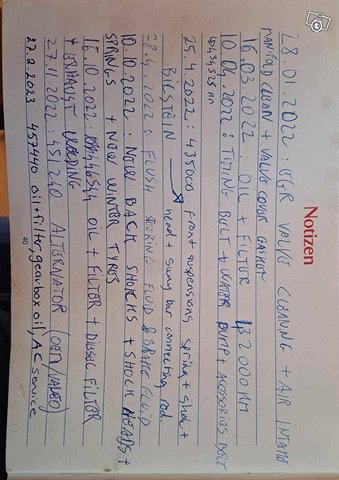 Notizen
28.01.2022: EGR VALVE CLEANING + AIR INTAKE
MANIFOLD CLEAN + VALVE COVER GASKET
16.03.2022 OIL + FILTER 432000 KM
10.04.2022: TIMING BELT + WATER PUMP + ACESSORIES BELT
25.4.2022: 435000 front suspensions spring + shok +
BILSTEIN → head + sway bar connecting rod
28.4.2022: FLUSH STEERING FLUID & BRAKE FLUID
10.10.2022: NEW BACK SHOCKS + SHOCK HEADS +
SPRINGS + NEW WINTER TYRES
15.10.2022: OIL + FILTER + DIESEL FILTER
+ EXHAUST WELDING
27.11.2022: 451 240 ALTERNATOR (OEM/VALEO)
27.2.2023 457440 oil+filter, gearbox oil, AC service